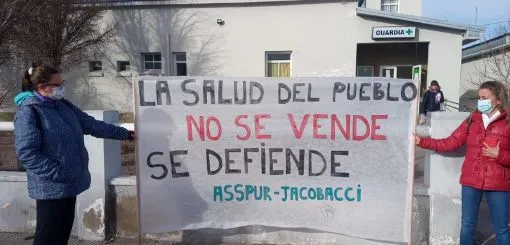 GUARDIA
LA SALUD DEL PUEBLO
NO SE VENDE
SE DEFIENDE
ASSPUR-JACOBACCI